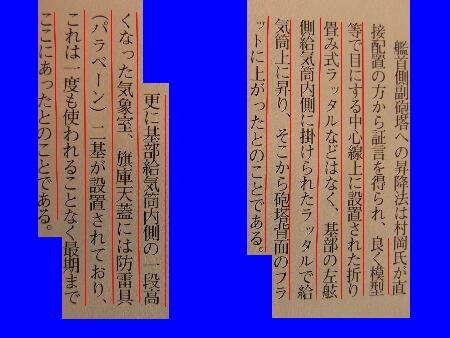 艦首側副砲塔への昇降法は村岡氏が直
接配置の方から証言を得られ、良く模型
等で目にする中心線上に設置された折り
畳み式ラッタルなどはなく、基部の左舷
側給気筒内側に掛けられたラッタルで給
気筒上に昇り、そこから砲塔背面のフラ
ットに上がったとのことである。
更に基部給気筒内側の一段高
くなった気象室、旗庫天蓋には防雷具
（パラベーン）二基が設置されており、
これは一度も使われることなく最期まで
ここにあったとのことである。